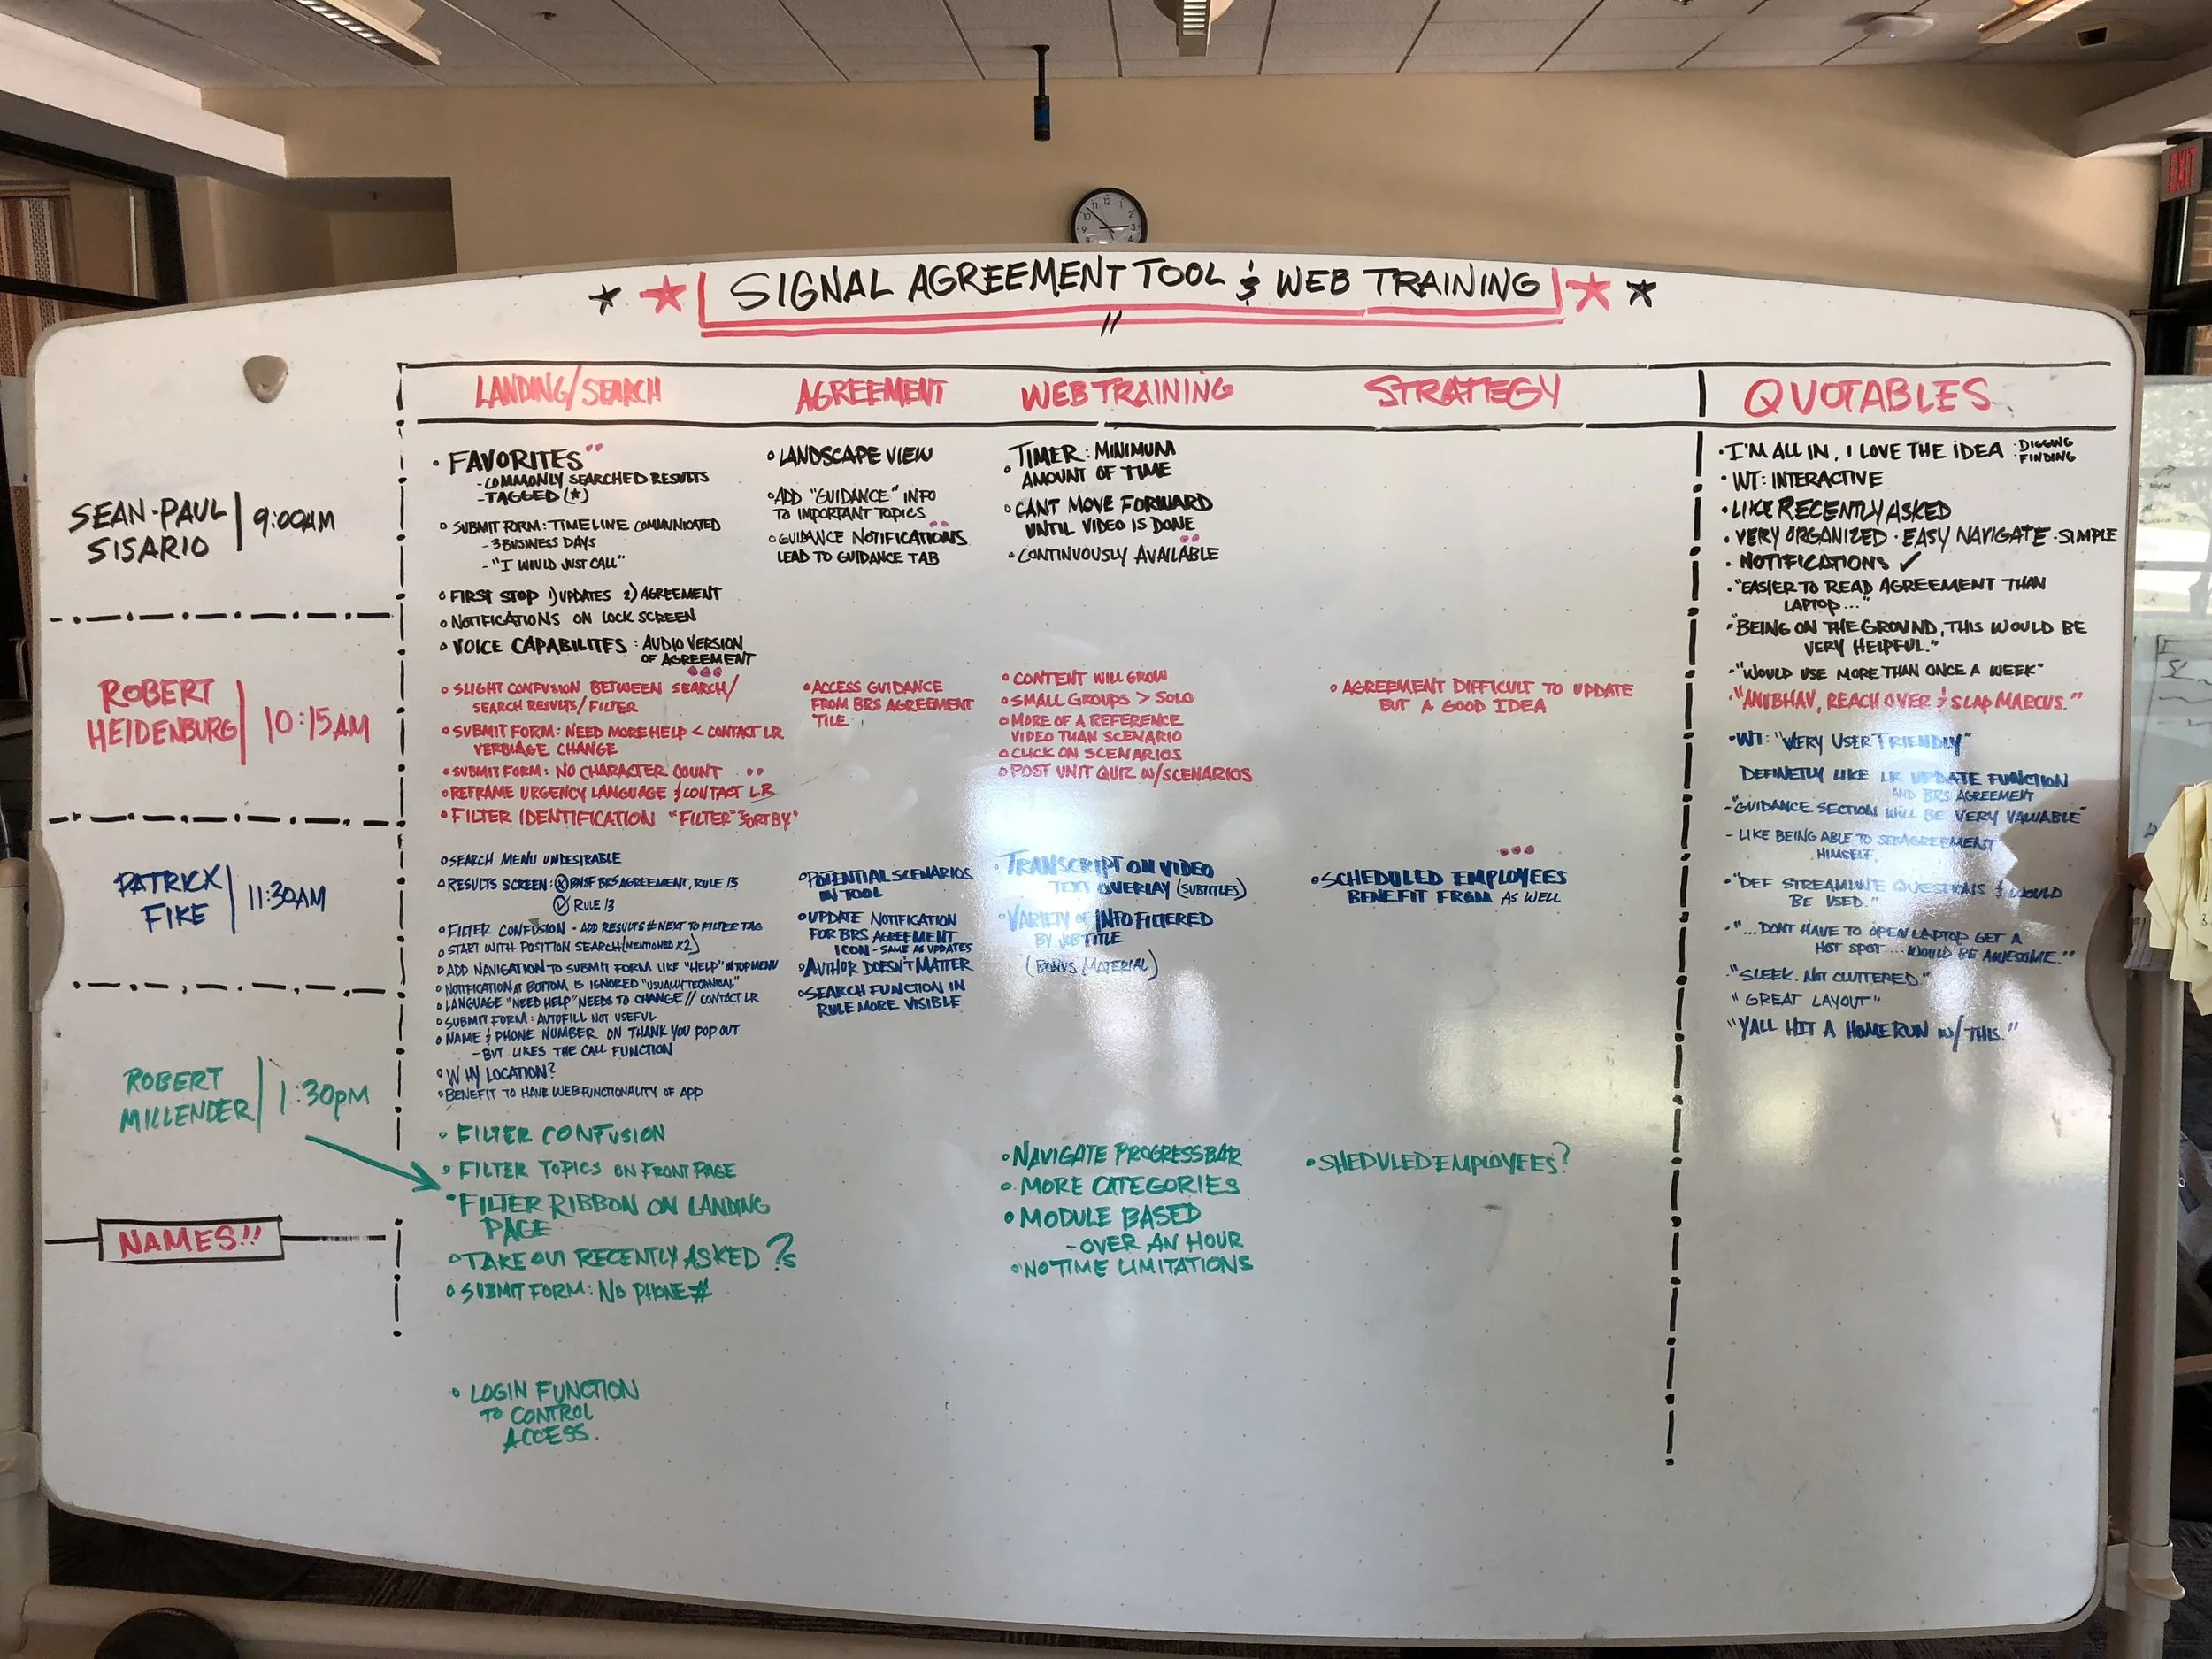 EXIT
SIGNAL AGREEMENT TOOL & WEB TRAINING
LANDING/SEARCH
AGREEMENT
WEB TRAINING
STRATEGY
QUOTABLES
SEAN-PAUL
SISARIO
9:00AM
• FAVORITES
- COMMONLY SEARCHED RESULTS
- TAGGED (*)
• SUBMIT FORM: TIMELINE COMMUNICATED
- 3 BUSINESS DAYS
- "I WOULD JUST CALL"
• FIRST STOP 1) UPDATES 2) AGREEMENT
• NOTIFICATIONS ON LOCK SCREEN
• VOICE CAPABILITES: AUDIO VERSION
OF AGREEMENT
• LANDSCAPE VIEW
• ADD "GUIDANCE" INFO
TO IMPORTANT TOPICS
• GUIDANCE NOTIFICATIONS
LEAD TO GUIDANCE TAB
• TIMER: MINIMUM
AMOUNT OF TIME
• CANT MOVE FORWARD
UNTIL VIDEO IS DONE
• CONTINUOUSLY AVAILABLE
• I'M ALL IN, I LOVE THE IDEA : DIGGING
FINDING
• WT: INTERACTIVE
• LIKE RECENTLY ASKED
• VERY ORGANIZED • EASY NAVIGATE • SIMPLE
• NOTIFICATIONS ✓
• "EASIER TO READ AGREEMENT THAN
LAPTOP..."
• "BEING ON THE GROUND, THIS WOULD BE
VERY HELPFUL."
- "WOULD USE MORE THAN ONCE A WEEK"
ROBERT
HEIDENBURG
10:15AM
• SLIGHT CONFUSION BETWEEN SEARCH/
SEARCH RESULTS/FILTER
• SUBMIT FORM: NEED MORE HELP < CONTACT LR
VERBIAGE CHANGE
• SUBMIT FORM: NO CHARACTER COUNT
• REFRAME URGENCY LANGUAGE & CONTACT LR
• FILTER IDENTIFICATION "FILTER" & "SORT BY"
• ACCESS GUIDANCE
FROM BRS AGREEMENT
TILE.
• CONTENT WILL GROW
• SMALL GROUPS > SOLO
• MORE OF A REFERENCE
VIDEO THAN SCENARIO
• CLICK ON SCENARIOS
• POST UNIT QUIZ W/SCENARIOS
• AGREEMENT DIFFICULT TO UPDATE
BUT A GOOD IDEA
• "ANUBHAV, REACH OVER & SLAP MARCUS."
PATRICK
FIKE
11:30AM
• SEARCH MENU UNDESIRABLE
• RESULTS SCREEN: Ⓧ BNSF BRS AGREEMENT, RULE 13
✓ RULE 13
• FILTER CONFUSION - ADD RESULTS # NEXT TO FILTER TAG
• START WITH POSITION SEARCH (MENTIONED X2)
• ADD NAVIGATION TO SUBMIT FORM LIKE "HELP" IN TOP MENU
• NOTIFICATION AT BOTTOM IS IGNORED "USUALLY TECHNICAL"
• LANGUAGE "NEED HELP" NEEDS TO CHANGE // CONTACT LR
• SUBMIT FORM: AUTOFILL NOT USEFUL
• NAME & PHONE NUMBER ON THANK YOU POP OUT
- BUT LIKES THE CALL FUNCTION
• WHY LOCATION?
• BENEFIT TO HAVE WEB FUNCTIONALITY OF APP
• POTENTIAL SCENARIOS
IN TOOL
• UPDATE NOTIFICATION
FOR BRS AGREEMENT
ICON - SAME AS UPDATES
• AUTHOR DOESN'T MATTER
• SEARCH FUNCTION IN
RULE MORE VISIBLE
• TRANSCRIPT ON VIDEO
TEXT OVERLAY (SUBTITLES)
• VARIETY OF INFO FILTERED
BY JOB TITLE
(BONUS MATERIAL)
• SCHEDULED EMPLOYEES
BENEFIT FROM AS WELL
• WT: "VERY USER FRIENDLY"
DEFINETLY LIKE LR UPDATE FUNCTION
AND BRS AGREEMENT
- "GUIDANCE SECTION WILL BE VERY VALUABLE"
- LIKE BEING ABLE TO SEE AGREEMENT
HIMSELF.
• "DEF STREAMLINE QUESTIONS & WOULD
BE USED."
• "...DONT HAVE TO OPEN LAPTOP GET A
HOT SPOT....WOULD BE AWESOME."
"SLEEK. NOT CLUTTERED."
"GREAT LAYOUT"
"YALL HIT A HOME RUN W/ THIS."
ROBERT
MILLENDER
1:30PM
• FILTER CONFUSION
• FILTER TOPICS ON FRONT PAGE
• FILTER RIBBON ON LANDING
PAGE
• TAKE OUT RECENTLY ASKED ?s
• SUBMIT FORM: NO PHONE #
• LOGIN FUNCTION
TO CONTROL
ACCESS.
• NAVIGATE PROGRESS BAR
• MORE CATEGORIES
• MODULE BASED
- OVER AN HOUR
• NO TIME LIMITATIONS
• SHEDULED EMPLOYEES?
NAMES!!